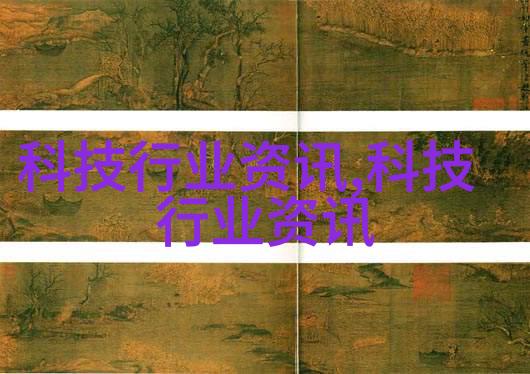 科技行业资讯,科技
行业资讯